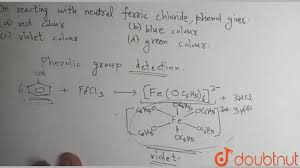 On reacting with neutral ferric chloride, phenol gives:
(a) red colour (b) blue colour
(c) violet colour (d) green colour.
Phenolic group detection.
OH
6 + FeCl3 → [Fe(OC6H5)6]3- + 3HCl
3H+
OC6H5
Fe
OC6H5
violet.
doubtnut